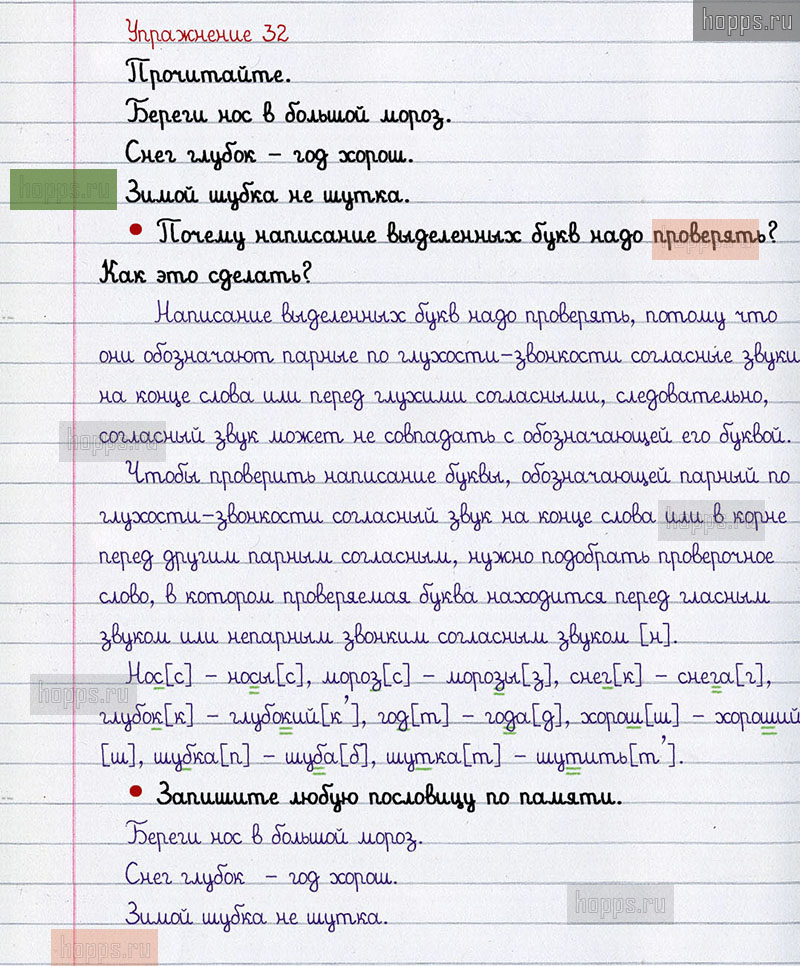 hopps.ru
Упражнение 32
Прочитайте.
Береги нос в большой мороз.
Снег глубок – год хорош.
hopps.ru
Зимой шубка не шутка.
• Почему написание выделенных букв надо проверять?
Как это сделать?
Написание выделенных букв надо проверять, потому что
они обозначают парные по глухости–звонкости согласные звуки
на конце слова или перед глухими согласными, следовательно,
согласный звук может не совпадать с обозначающей его буквой.
hopps.ru
Чтобы проверить написание буквы, обозначающей парный по
глухости–звонкости согласный звук на конце слова или в корне
hopps.ru
перед другим парным согласным, нужно подобрать проверочное
слово, в котором проверяемая буква находится перед гласным
звуком или непарным звонким согласным звуком [н].
Нос[с] – носы[с], мороз[с] – морозы[з], снег[к] – снега[г],
hopps.ru
глубок[к] – глубокий[к’], год[т] – года[д], хорош[ш] – хороший
[ш], шубка[п] – шуба[б], шутка[т] – шутить[т’].
• Запишите любую пословицу по памяти.
Береги нос в большой мороз.
Снег глубок – год хорош.
hopps.ru
Зимой шубка не шутка.
hopps.ru